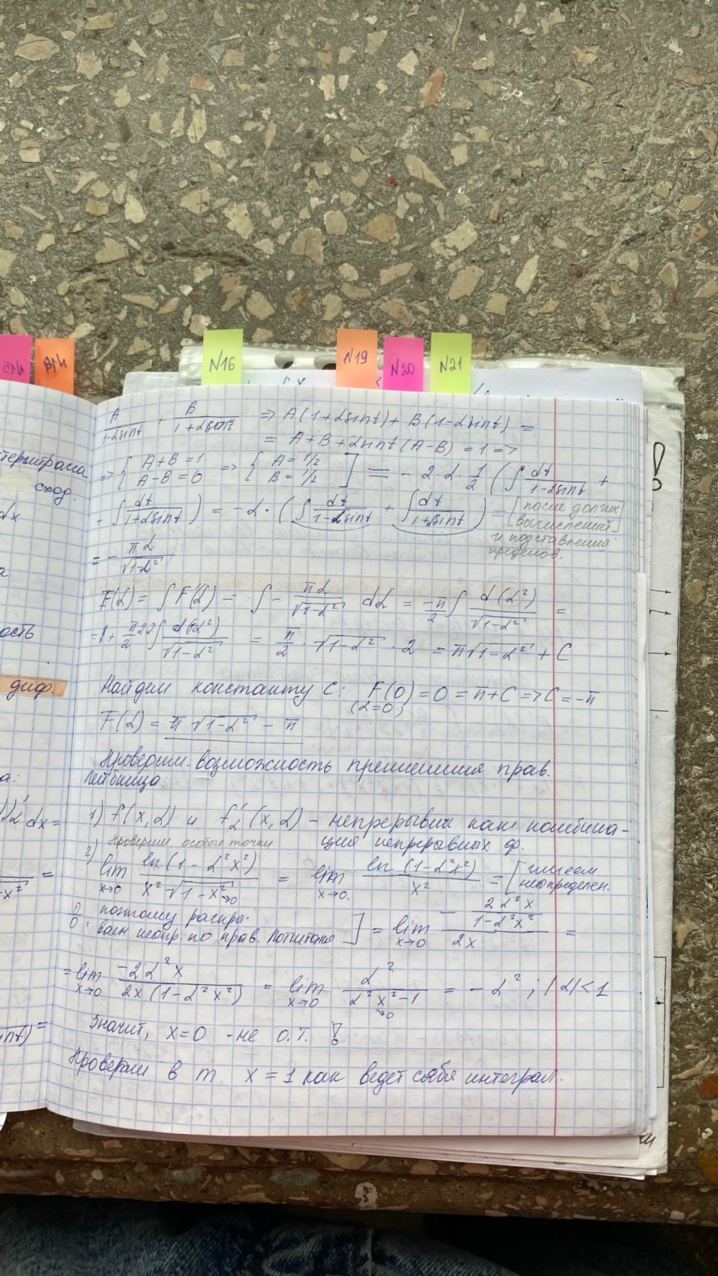 N16
N19
N20
N21
A/(1-αsint) + B/(1+αsint) => A(1+αsint) + B(1-αsint) =
= A+B+αsint(A-B) = 1 =>
=> { A+B=1 A-B=0 => { A=1/2 B=1/2 ] = -2·α·1/2 (∫ dt/(1-αsint) +
+ ∫ dt/(1+αsint)) = -α·(∫ dt/(1-αsint) + ∫ dt/(1+αsint)) = [после долгих
вычислений]
и подставления
пределов.
= - πα/√(1-α²)
F(α) = ∫ F'(α) = ∫ - πα/√(1-α²) dα = -π/2 ∫ d(α²)/√(1-α²) =
∫ d(α²)/√(1-α²) = π/2 · √(1-α²) · 2 = π√(1-α²) + C
Найдем константу C: F(0) = 0 = π+C => C = -π
(α=0)
F(α) = π √(1-α²) - π
Проверим возможность применения прав.
Лейбница.
1) f(x,α) и f'α(x,α) - непрерывны как комбина-
ция непрерывных ф.
Проверим особые точки
2) lim x→0 ln(1-α²x²)/(x²√(1-x²)) →0 = lim x→0 ln(1-α²x²)/x² = [имеем
неопределен.
0/0, поэтому раскры-
ваем неопр. по прав. Лопиталя ] = lim x→0 - (2α²x/(1-α²x²))/2x =
= lim x→0 -2α²x/(2x(1-α²x²)) = lim x→0 α²/(α²x²-1) →0 = -α², |α|<1
Значит, x=0 - не О.Т. !
Проверим в т. x=1 как ведет себя интеграл.
сход.
dx
а
ость
диф.
а:
dx =
=